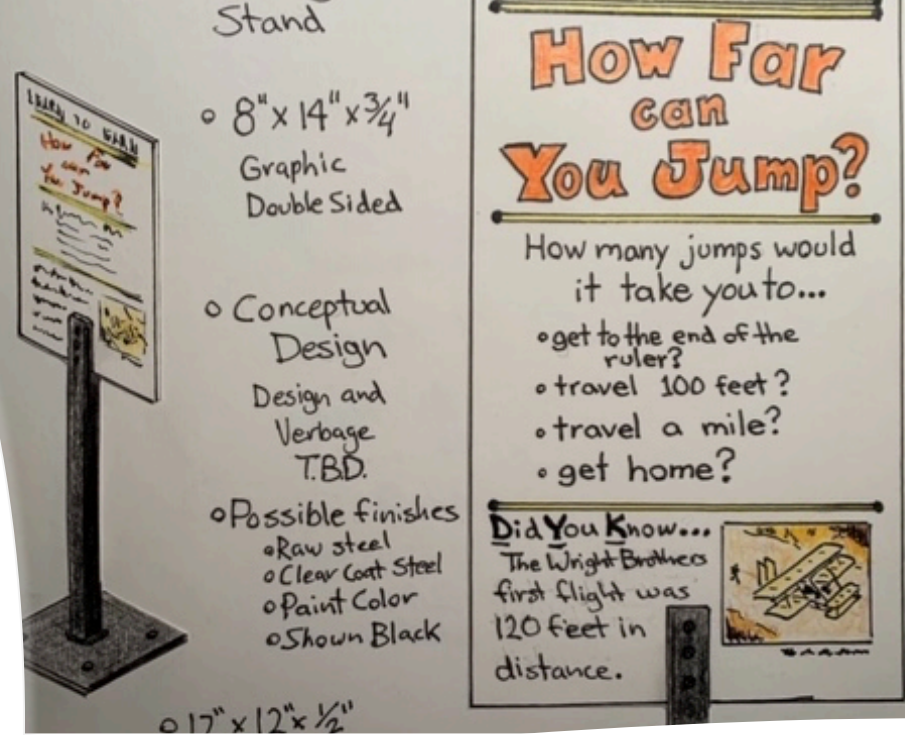 Stand
8" x 14" x 3/4"
Graphic
Double Sided
Conceptual
Design
Design and
Verbage
T.B.D.
Possible finishes
Raw steel
Clear Coat Steel
Paint Color
Shown Black
12" x 12" x 1/2"
LEARN TO EARN
How Far
can
You Jump?
How Far
can
You Jump?
How many jumps would
it take you to...
get to the end of the
ruler?
travel 100 feet?
travel a mile?
get home?
Did You Know...
The Wright Brothers
first flight was
120 feet in
distance.